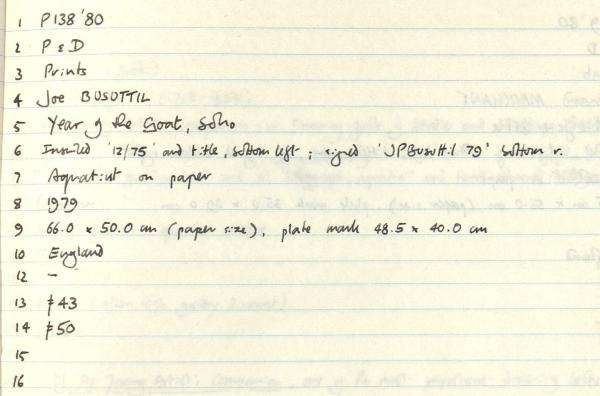 1 P138 '80
2 P & D
3 Prints
4 Joe BUSUTTIL
5 Year of the Goat, Soho
6 Inscribed '12/75' and title, bottom left; signed 'JPBusuttil 79' bottom r.
7 Aquatint on paper
8 1979
9 66.0 x 50.0 cm (paper size), plate mark 48.5 x 40.0 cm
10 England
12 -
13 £43
14 £50
15
16